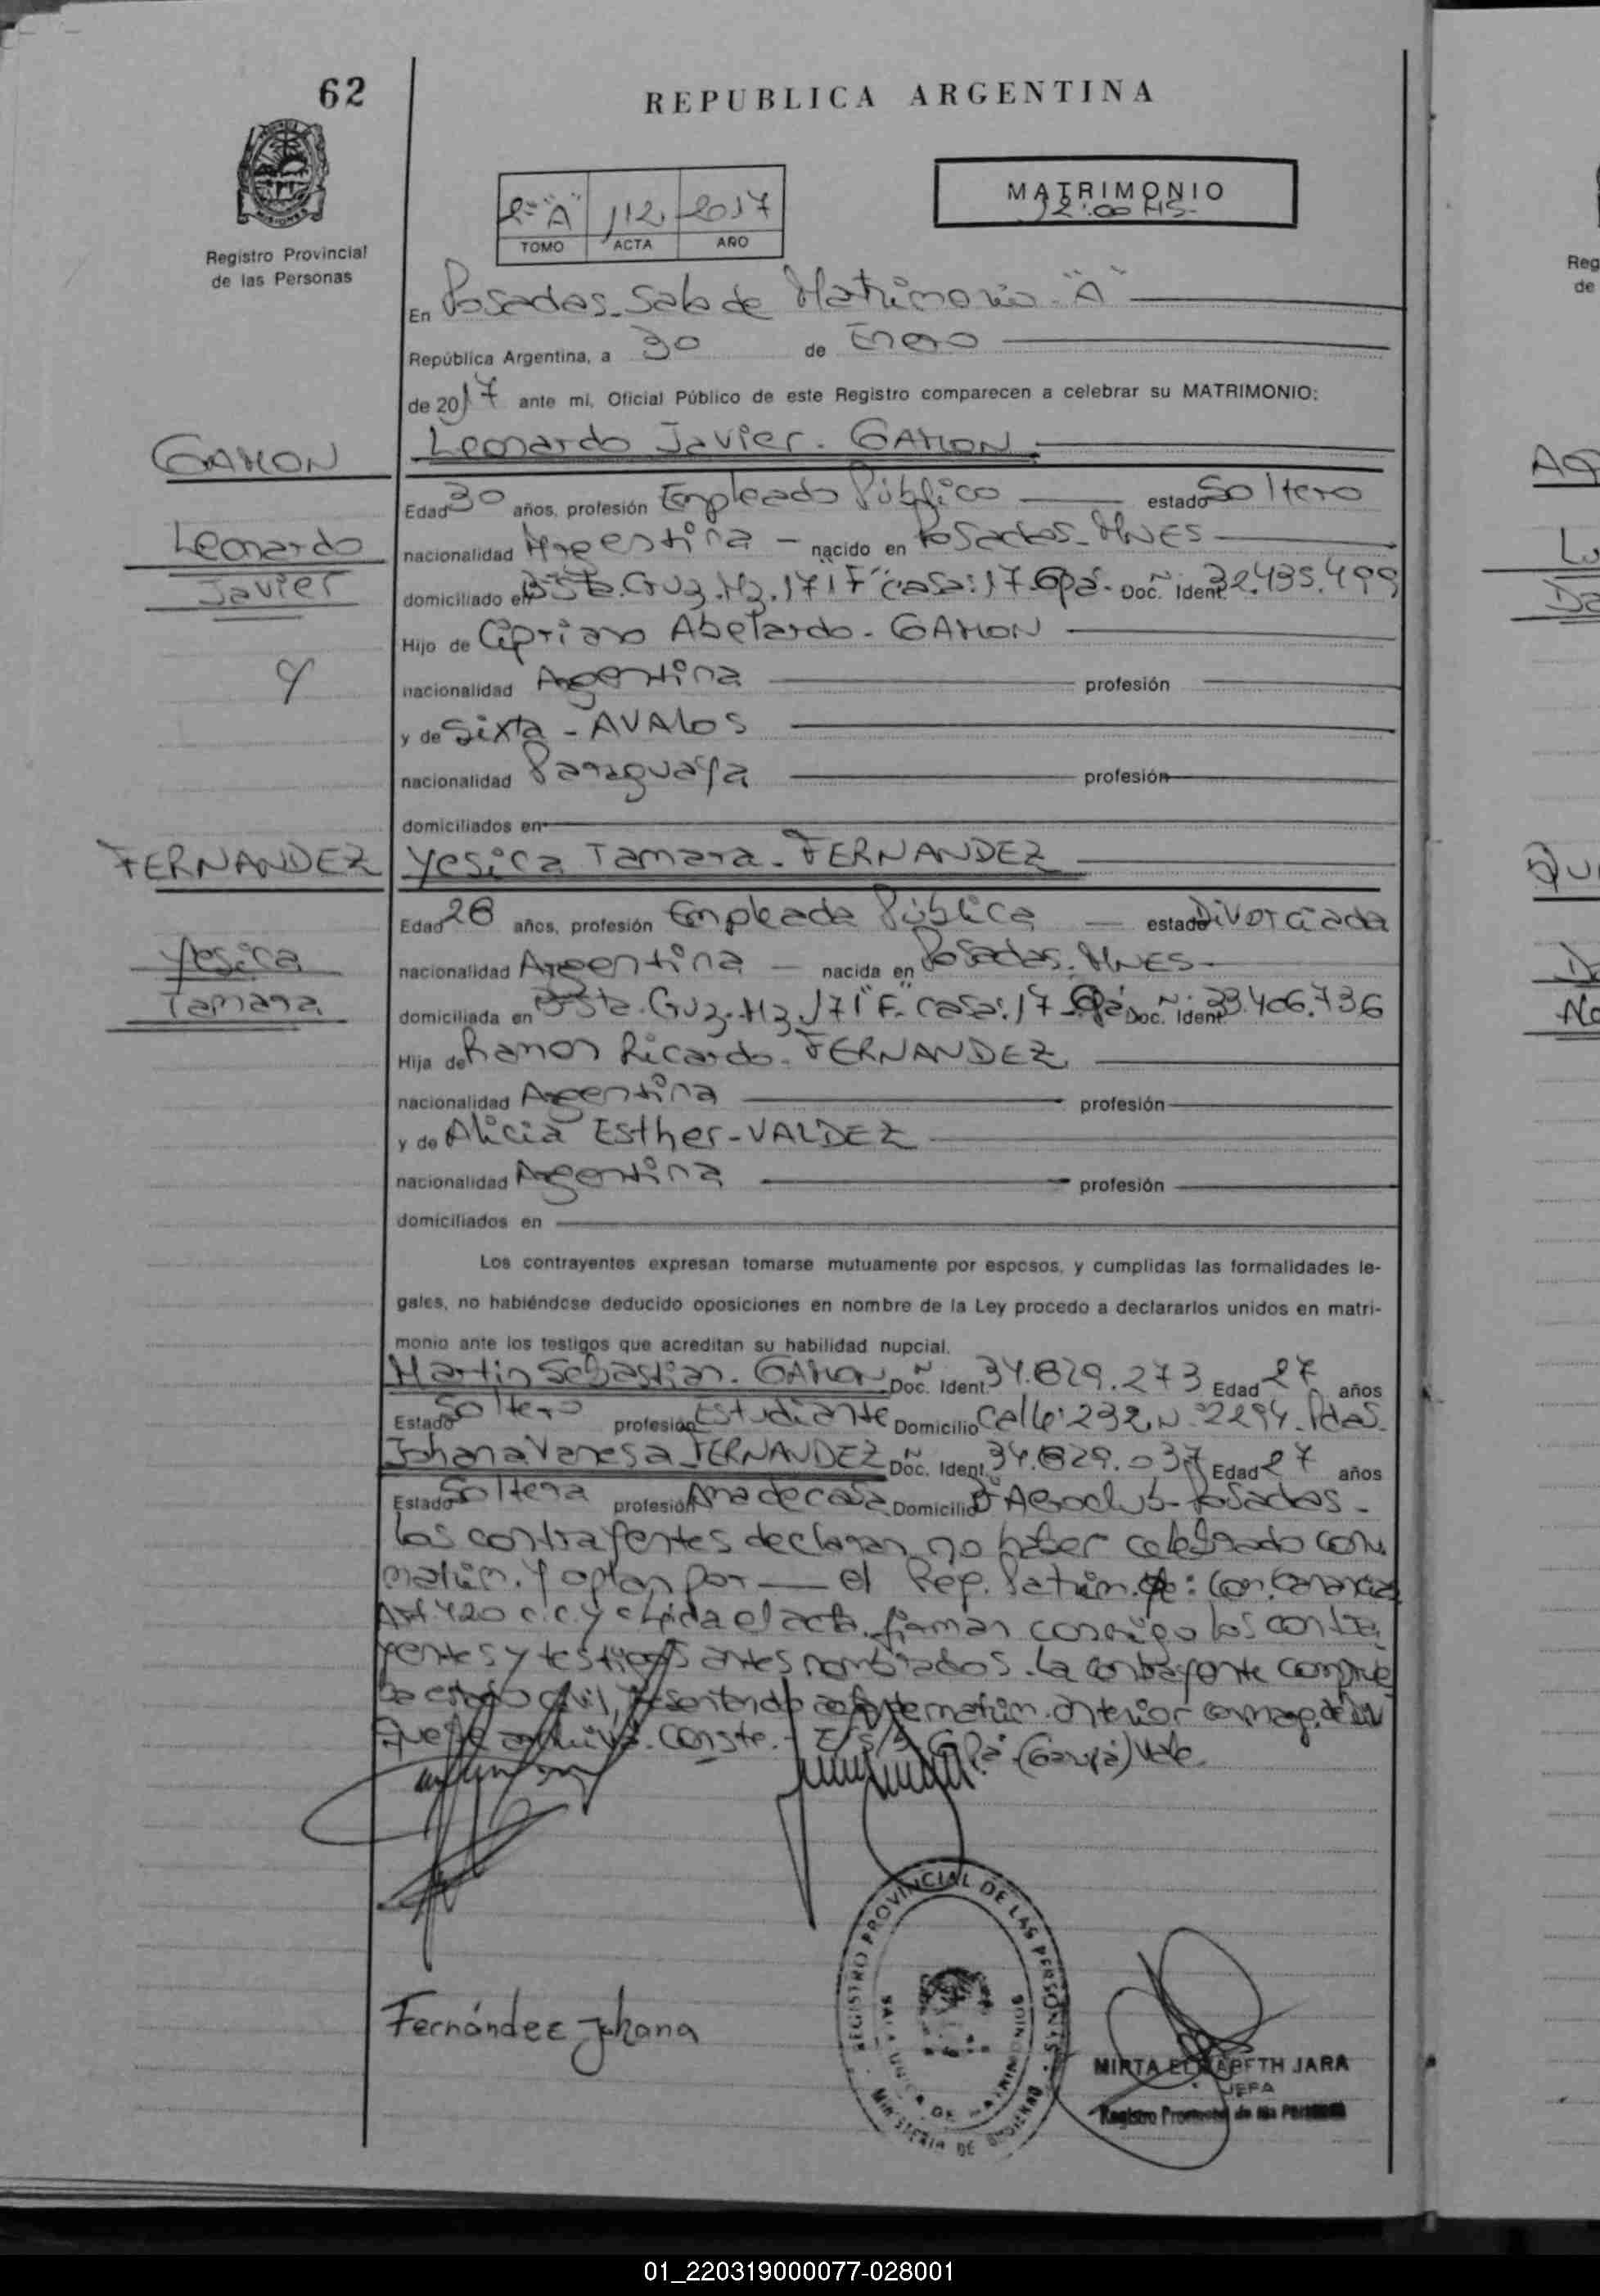 62
REPUBLICA ARGENTINA
Registro Provincial
de las Personas
2º "A" 112 2017
TOMO ACTA AÑO
MATRIMONIO
12:00 HS-
En Posadas-Sala de Matrimonio-"A"
República Argentina, a 30 de Enero
de 2017 ante mi, Oficial Público de este Registro comparecen a celebrar su MATRIMONIO:
GAMON
Leonardo Javier. GAMON
Leonardo
Javier
y
Edad 30 años, profesión Empleado Público estado Soltero
nacionalidad Argentina - nacido en Posadas-MNES
domiciliado en Sta. Cruz. Mz. 171"F" casa: 17-Gpá- Doc. Ident. Nº 32.435.499
Hijo de Cipriano Abelardo- GAMON
nacionalidad Argentina profesión
y de Sixta - AVALOS
nacionalidad Paraguaya profesión
domiciliados en
FERNANDEZ
Yesica Tamara- FERNANDEZ
Yesica
Tamara
Edad 28 años, profesión Empleada Pública - estado Divorciada
nacionalidad Argentina - nacida en Posadas. MNES
domiciliada en Sta. Cruz. Mz. 171"F" casa: 17-Gpá Doc. Ident. Nº 33.406.736
Hija de Ramon Ricardo- FERNANDEZ
nacionalidad Argentina profesión
y de Alicia Esther-VALDEZ
nacionalidad Argentina profesión
domiciliados en
Los contrayentes expresan tomarse mutuamente por esposos, y cumplidas las formalidades le-
gales, no habiéndose deducido oposiciones en nombre de la Ley procedo a declararlos unidos en matri-
monio ante los testigos que acreditan su habilidad nupcial.
Martin Sebastian. GAMON Doc. Ident. Nº 34.829.273 Edad 27 años
Estado Soltero profesión Estudiante Domicilio Calle: 232 Nº 2294-Pdas-
Johana Vanesa FERNANDEZ Doc. Ident. Nº 34.829.037 Edad 27 años
Estado Soltera profesión Ama de casa Domicilio Bº Aeroclub-Posadas-
Los contrayentes declaran no haber celebrado conv.
matrim. Y optan por — el Reg. Patrim. de: Con. Ganancias
Art. 420 c.c. y c Leida el acta, firman conmigo los contra
yentes y testigos antes nombrados. La contrayente comprue
ba estado civil, presentando matrim. anterior
que se archiva. Conste.- E/S/ Gpá. (Garupá) Vale.
Fernández Johana
REGISTRO PROVINCIAL DE LAS PERSONAS
MINISTERIO DE GOBIERNO
MIRTA ELIZABETH JARA
JEFA
Registro Provincial de las Personas
01_220319000077-028001